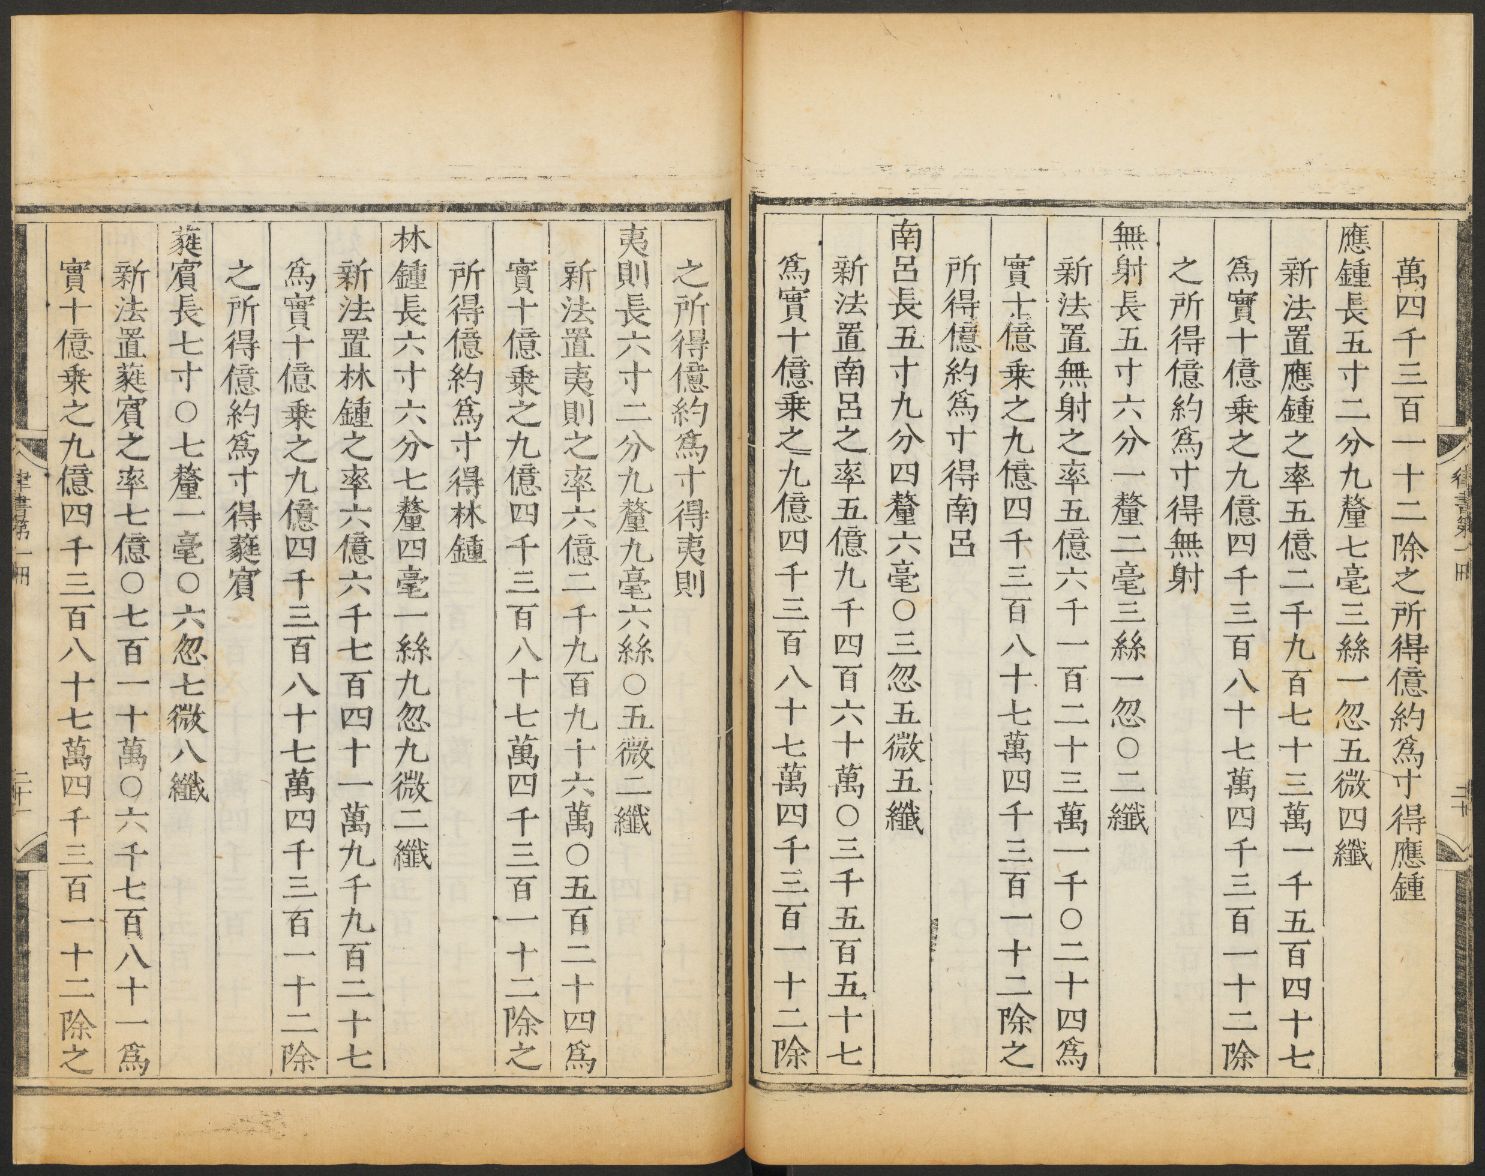 萬四千三百一十二除之所得億約爲寸得應鍾
應鍾長五寸二分九釐七毫三絲一忽五微四纖
新法置應鍾之率五億二千九百七十三萬一千五百四十七
爲實十億乗之九億四千三百八十七萬四千三百一十二除
之所得億約爲寸得無射
無射長五寸六分一釐二毫三絲一忽〇二纖
新法置無射之率五億六千一百二十三萬一千〇二十四爲
實十億乗之九億四千三百八十七萬四千三百一十二除之
所得億約爲寸得南呂
南呂長五寸九分四釐六毫〇三忽五微五纖
新法置南呂之率五億九千四百六十萬〇三千五百五十七
爲實十億乗之九億四千三百八十七萬四千三百一十二除
律書第一冊
二十
之所得億約爲寸得夷則
夷則長六寸二分九釐九毫六絲〇五微二纖
新法置夷則之率六億二千九百九十六萬〇五百二十四爲
實十億乗之九億四千三百八十七萬四千三百一十二除之
所得億約爲寸得林鍾
林鍾長六寸六分七釐四毫一絲九忽九微二纖
新法置林鍾之率六億六千七百四十一萬九千九百二十七
爲實十億乗之九億四千三百八十七萬四千三百一十二除
之所得億約爲寸得蕤賓
蕤賓長七寸〇七釐一毫〇六忽七微八纖
新法置蕤賓之率七億〇七百一十萬〇六千七百八十一爲
實十億乗之九億四千三百八十七萬四千三百一十二除之
律書第一冊
二十一